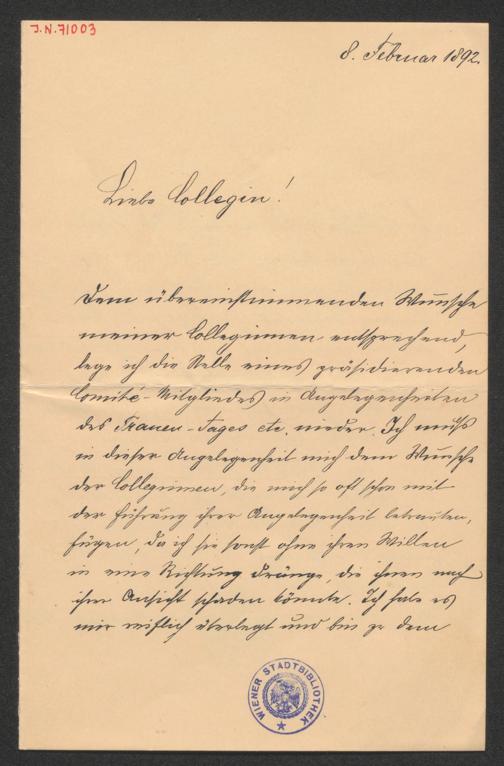 J.N. 71003
8. Februar 1892.
Liebe Collegin!
Dem übereinstimmenden Wunsche
meiner Colleginnen entsprechend,
lege ich die Stelle eines präsidierenden
Comité-Mitgliedes in Angelegenheiten
des Frauen-Tages etc. nieder. Ich muß
in dieser Angelegenheit mich dem Wunsche
der Colleginnen, die mich so oft schon mit
der Führung ihrer Angelegenheit betrauten,
fügen, da ich sie sonst ohne ihren Willen
in eine Richtung dränge, die ihnen nach
ihrer Ansicht schaden könnte. Ich habe es
mir reiflich überlegt und bin zu dem
WIENER STADTBIBLIOTHEK